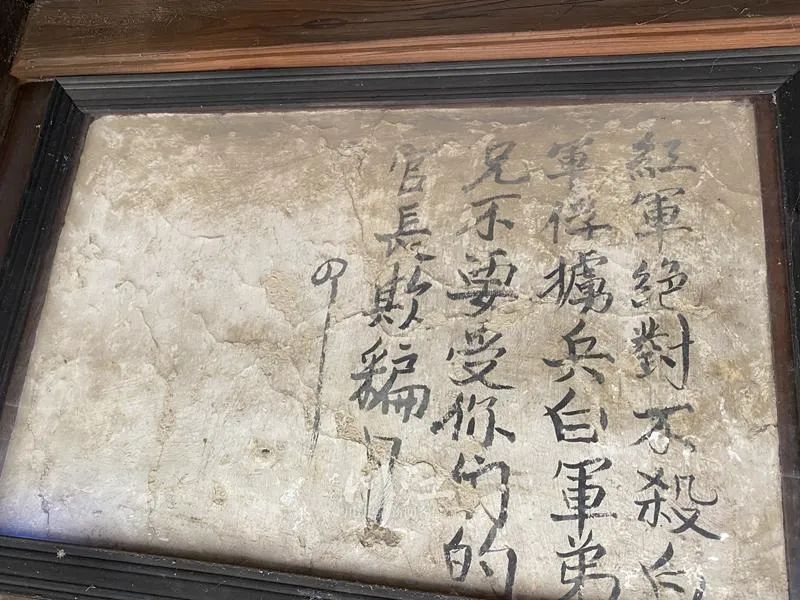 紅軍絕對不殺白
軍俘擄兵白軍弟
兄不要受你们的
官長欺騙